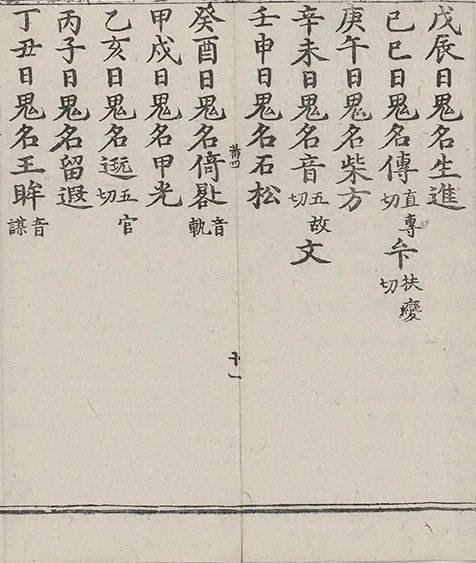 戊辰日鬼名生進
己巳日鬼名傳直專切卞扶變切
庚午日鬼名柴方
辛未日鬼名音五故切文
壬申日鬼名石松
癸酉日鬼名倚晷音軌
甲戌日鬼名甲光
乙亥日鬼名五官切
丙子日鬼名留遐
丁丑日鬼名王眸音謀